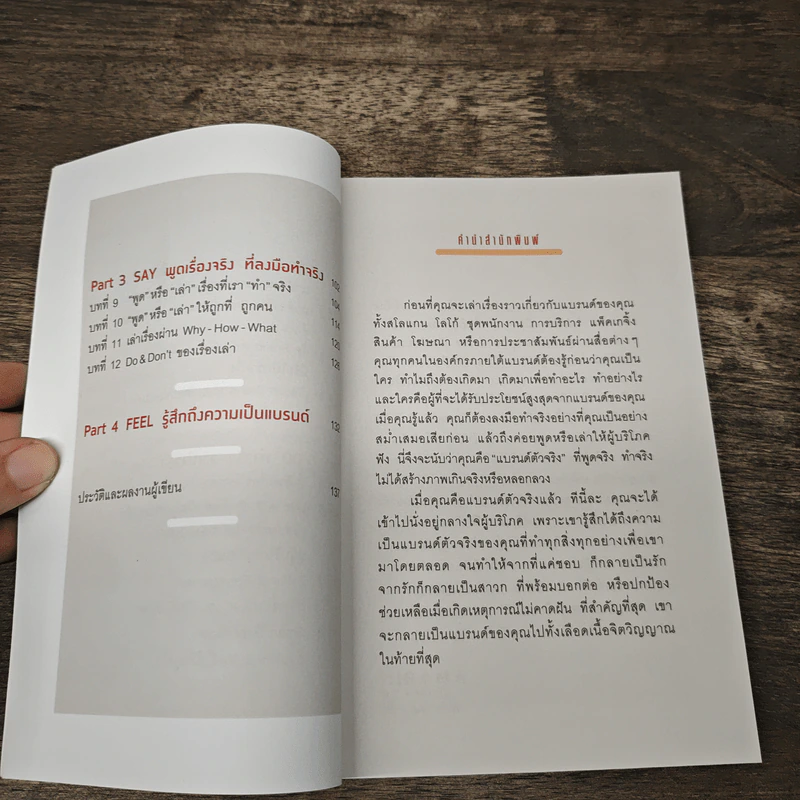 Part 3 SAY พูดเรื่องจริง ที่ลงมือทำจริง 102
บทที่ 9 "พูด" หรือ "เล่า" เรื่องที่เรา "ทำ" จริง 104
บทที่ 10 "พูด" หรือ "เล่า" ให้ถูกที่ ถูกคน 114
บทที่ 11 เล่าเรื่องผ่าน Why - How - What 120
บทที่ 12 Do & Don't ของเรื่องเล่า 126
Part 4 FEEL รู้สึกถึงความเป็นแบรนด์ 132
ประวัติและผลงานผู้เขียน 137
คำนำสำนักพิมพ์
ก่อนที่คุณจะเล่าเรื่องราวเกี่ยวกับแบรนด์ของคุณ
ทั้งสโลแกน โลโก้ ชุดพนักงาน การบริการ แพ็คเกจิ้ง
สินค้า โฆษณา หรือการประชาสัมพันธ์ผ่านสื่อต่างๆ
คุณทุกคนในองค์กรภายใต้แบรนด์ต้องรู้ก่อนว่าคุณเป็น
ใคร ทำไมถึงต้องเกิดมา เกิดมาเพื่อทำอะไร ทำอย่างไร
และใครคือผู้ที่จะได้รับประโยชน์สูงสุดจากแบรนด์ของคุณ
เมื่อคุณรู้แล้ว คุณก็ต้องลงมือทำจริงอย่างที่คุณเป็นอย่าง
สม่ำเสมอเสียก่อน แล้วถึงค่อยพูดหรือเล่าให้ผู้บริโภค
ฟัง นี่จึงจะนับว่าคุณคือ "แบรนด์ตัวจริง" ที่พูดจริง ทำจริง
ไม่ได้สร้างภาพเกินจริงหรือหลอกลวง
เมื่อคุณคือแบรนด์ตัวจริงแล้ว ทีนี้ละ คุณจะได้
เข้าไปนั่งอยู่กลางใจผู้บริโภค เพราะเขารู้สึกได้ถึงความ
เป็นแบรนด์ตัวจริงของคุณที่ทำทุกสิ่งทุกอย่างเพื่อเขา
มาโดยตลอด จนทำให้จากที่แค่ชอบ ก็กลายเป็นรัก
จากรักก็กลายเป็นสาวก ที่พร้อมบอกต่อ หรือปกป้อง
ช่วยเหลือเมื่อเกิดเหตุการณ์ไม่คาดฝัน ที่สำคัญที่สุด เขา
จะกลายเป็นแบรนด์ของคุณไปทั้งเลือดเนื้อจิตวิญญาณ
ในท้ายที่สุด